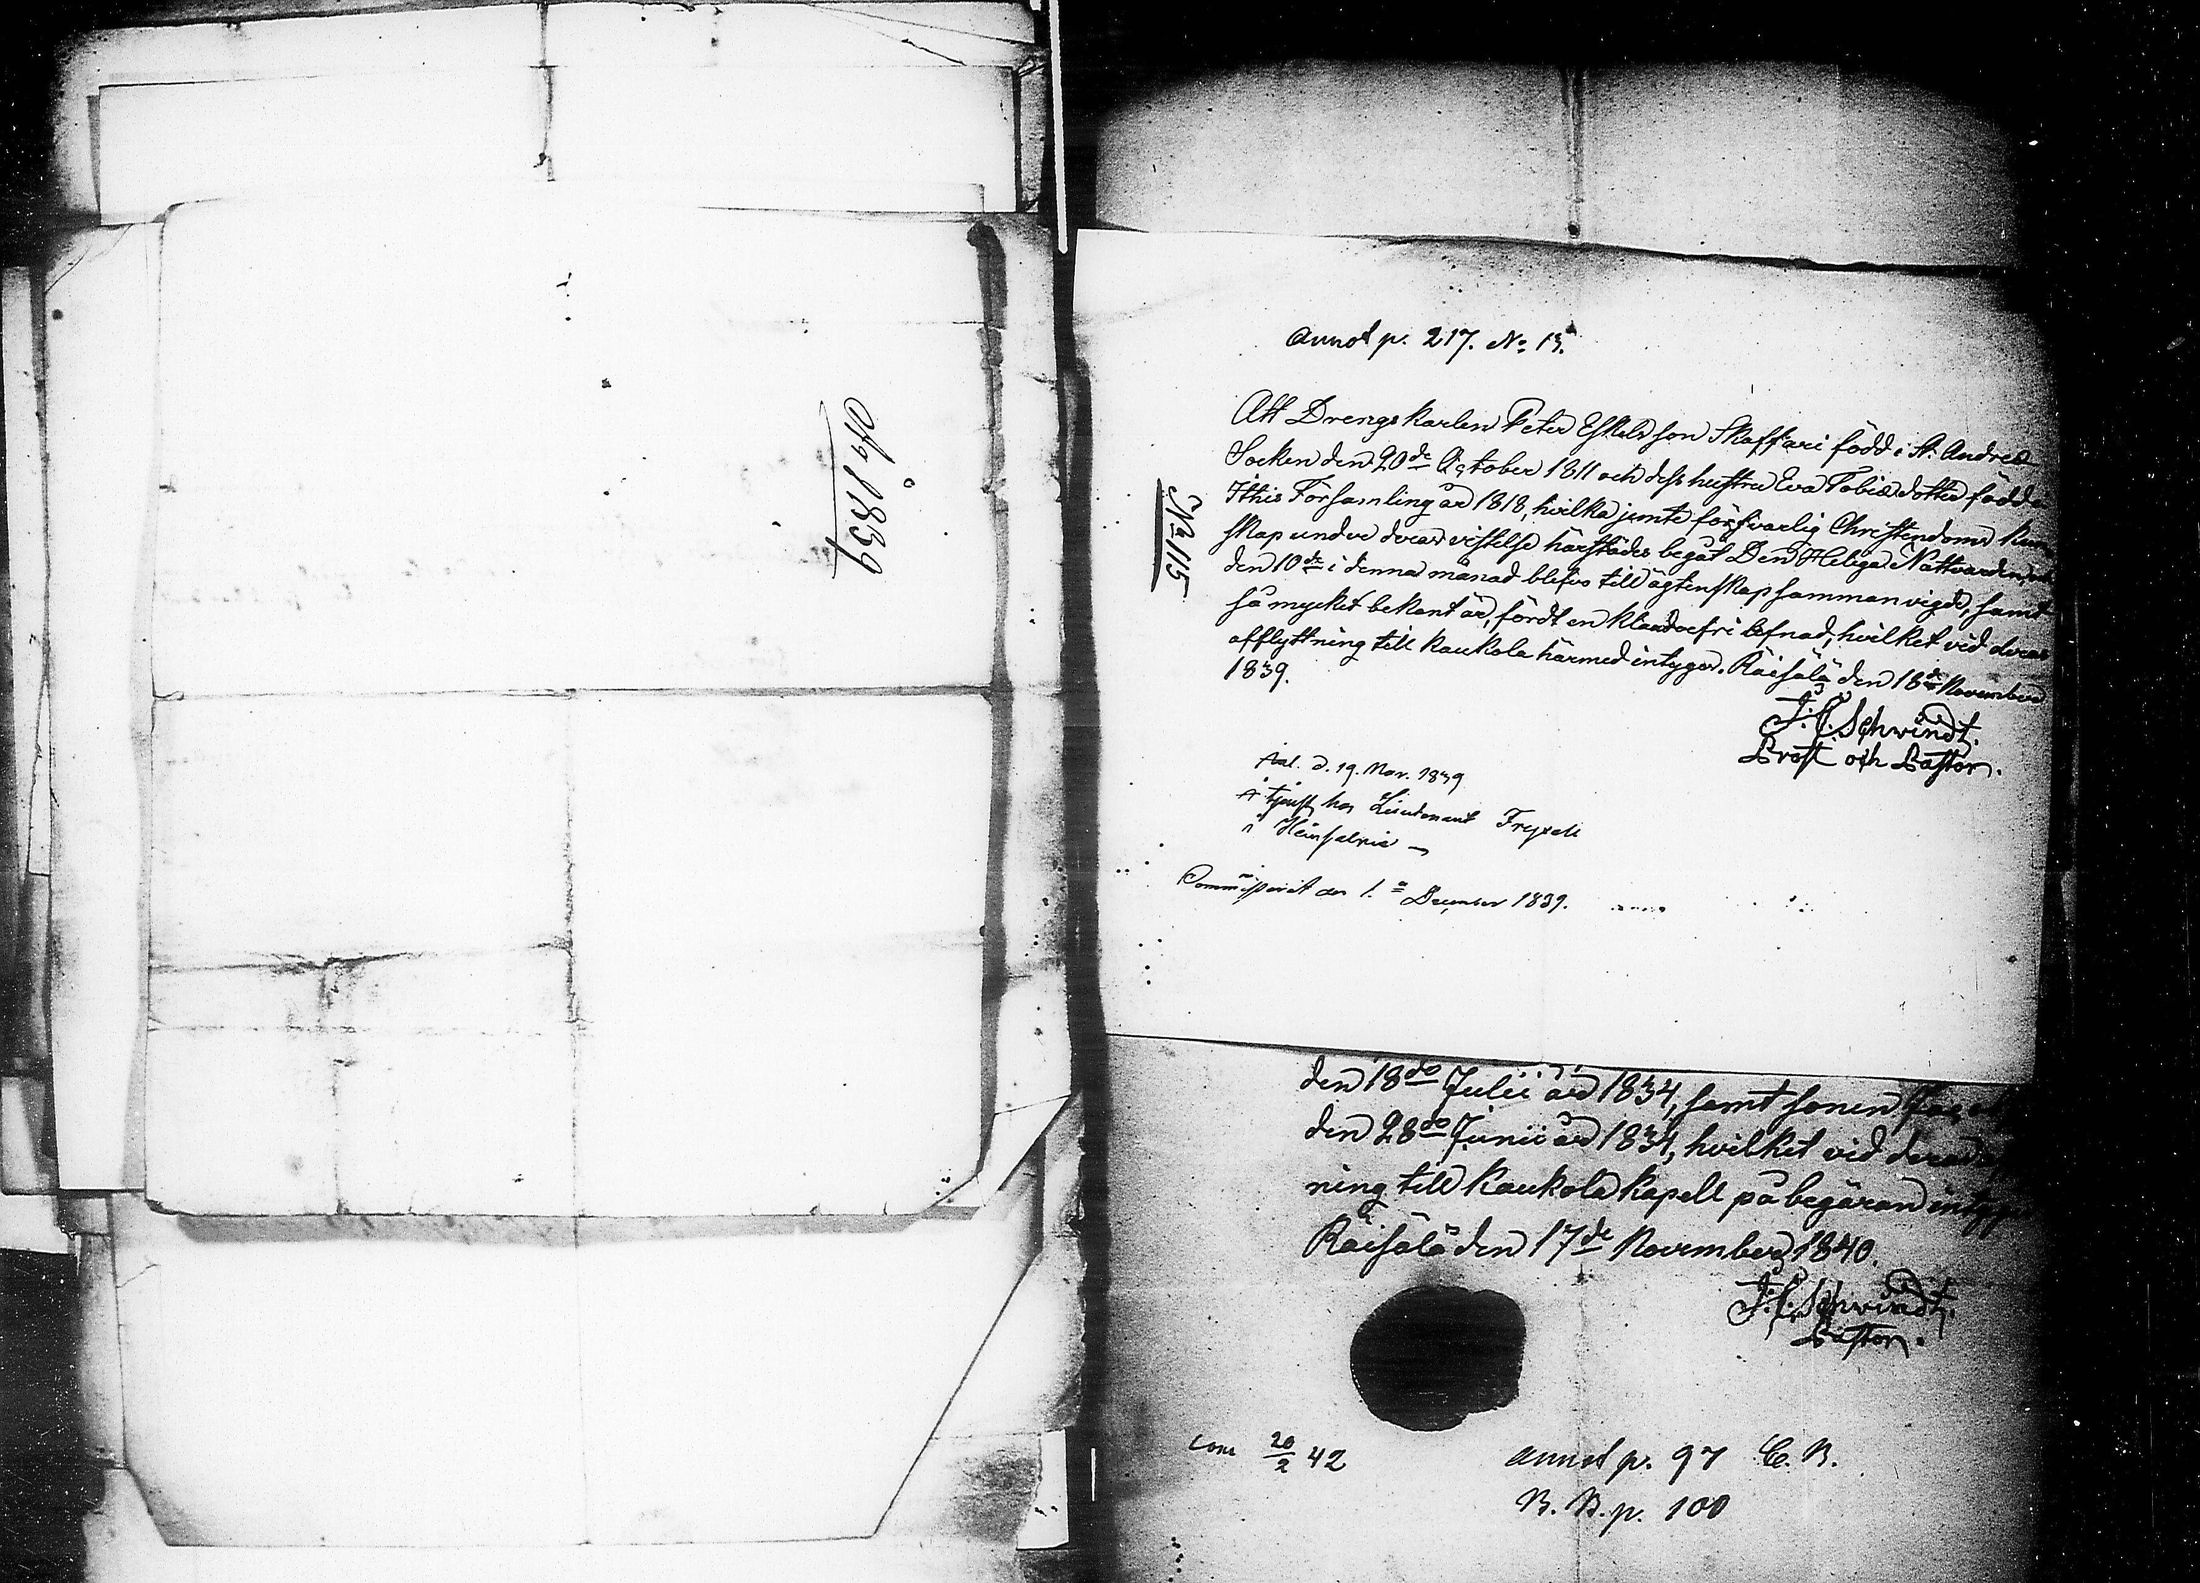 År 1839
Annot p. 217. No 13.
No 115
Att Drengskarlen Peter Eskelsson Skaffari född i St. Andreæ
Socken den 20de October 1811 och dess hustru Eva Tobiæ dotter född i
Ithis Församling år 1818, hvilka jemte försvarlig Christendoms kun-
skap under deras vistelse härstädes begåt Den Heliga Nattvarden,
den 10de i denna månad blefvo till ägtenskap sammanvigde, samt
så mycket bekant är, fördt en klanderfri lefnad, hvilket vid deras
afflyttning till Kaukola härmed intygas. Räisälä den 18de November
1839.
J. C. Schwindt.
Prost och Pastor.
d. 19. Nov. 1839
i tjenst hos Lieutenant Fryxell
i
Communicerat den 1. December 1839.
den 18de Julii år 1834, samt sonen
den 28de Junii år 1834, hvilket vid deras
ning till Kaukola Kapell på begäran intygas
Räisälä den 17de November 1840.
J. C. Schwindt.
Pastor.
Com 20/2 42
annot p. 97 C. B.
B. B. p. 100